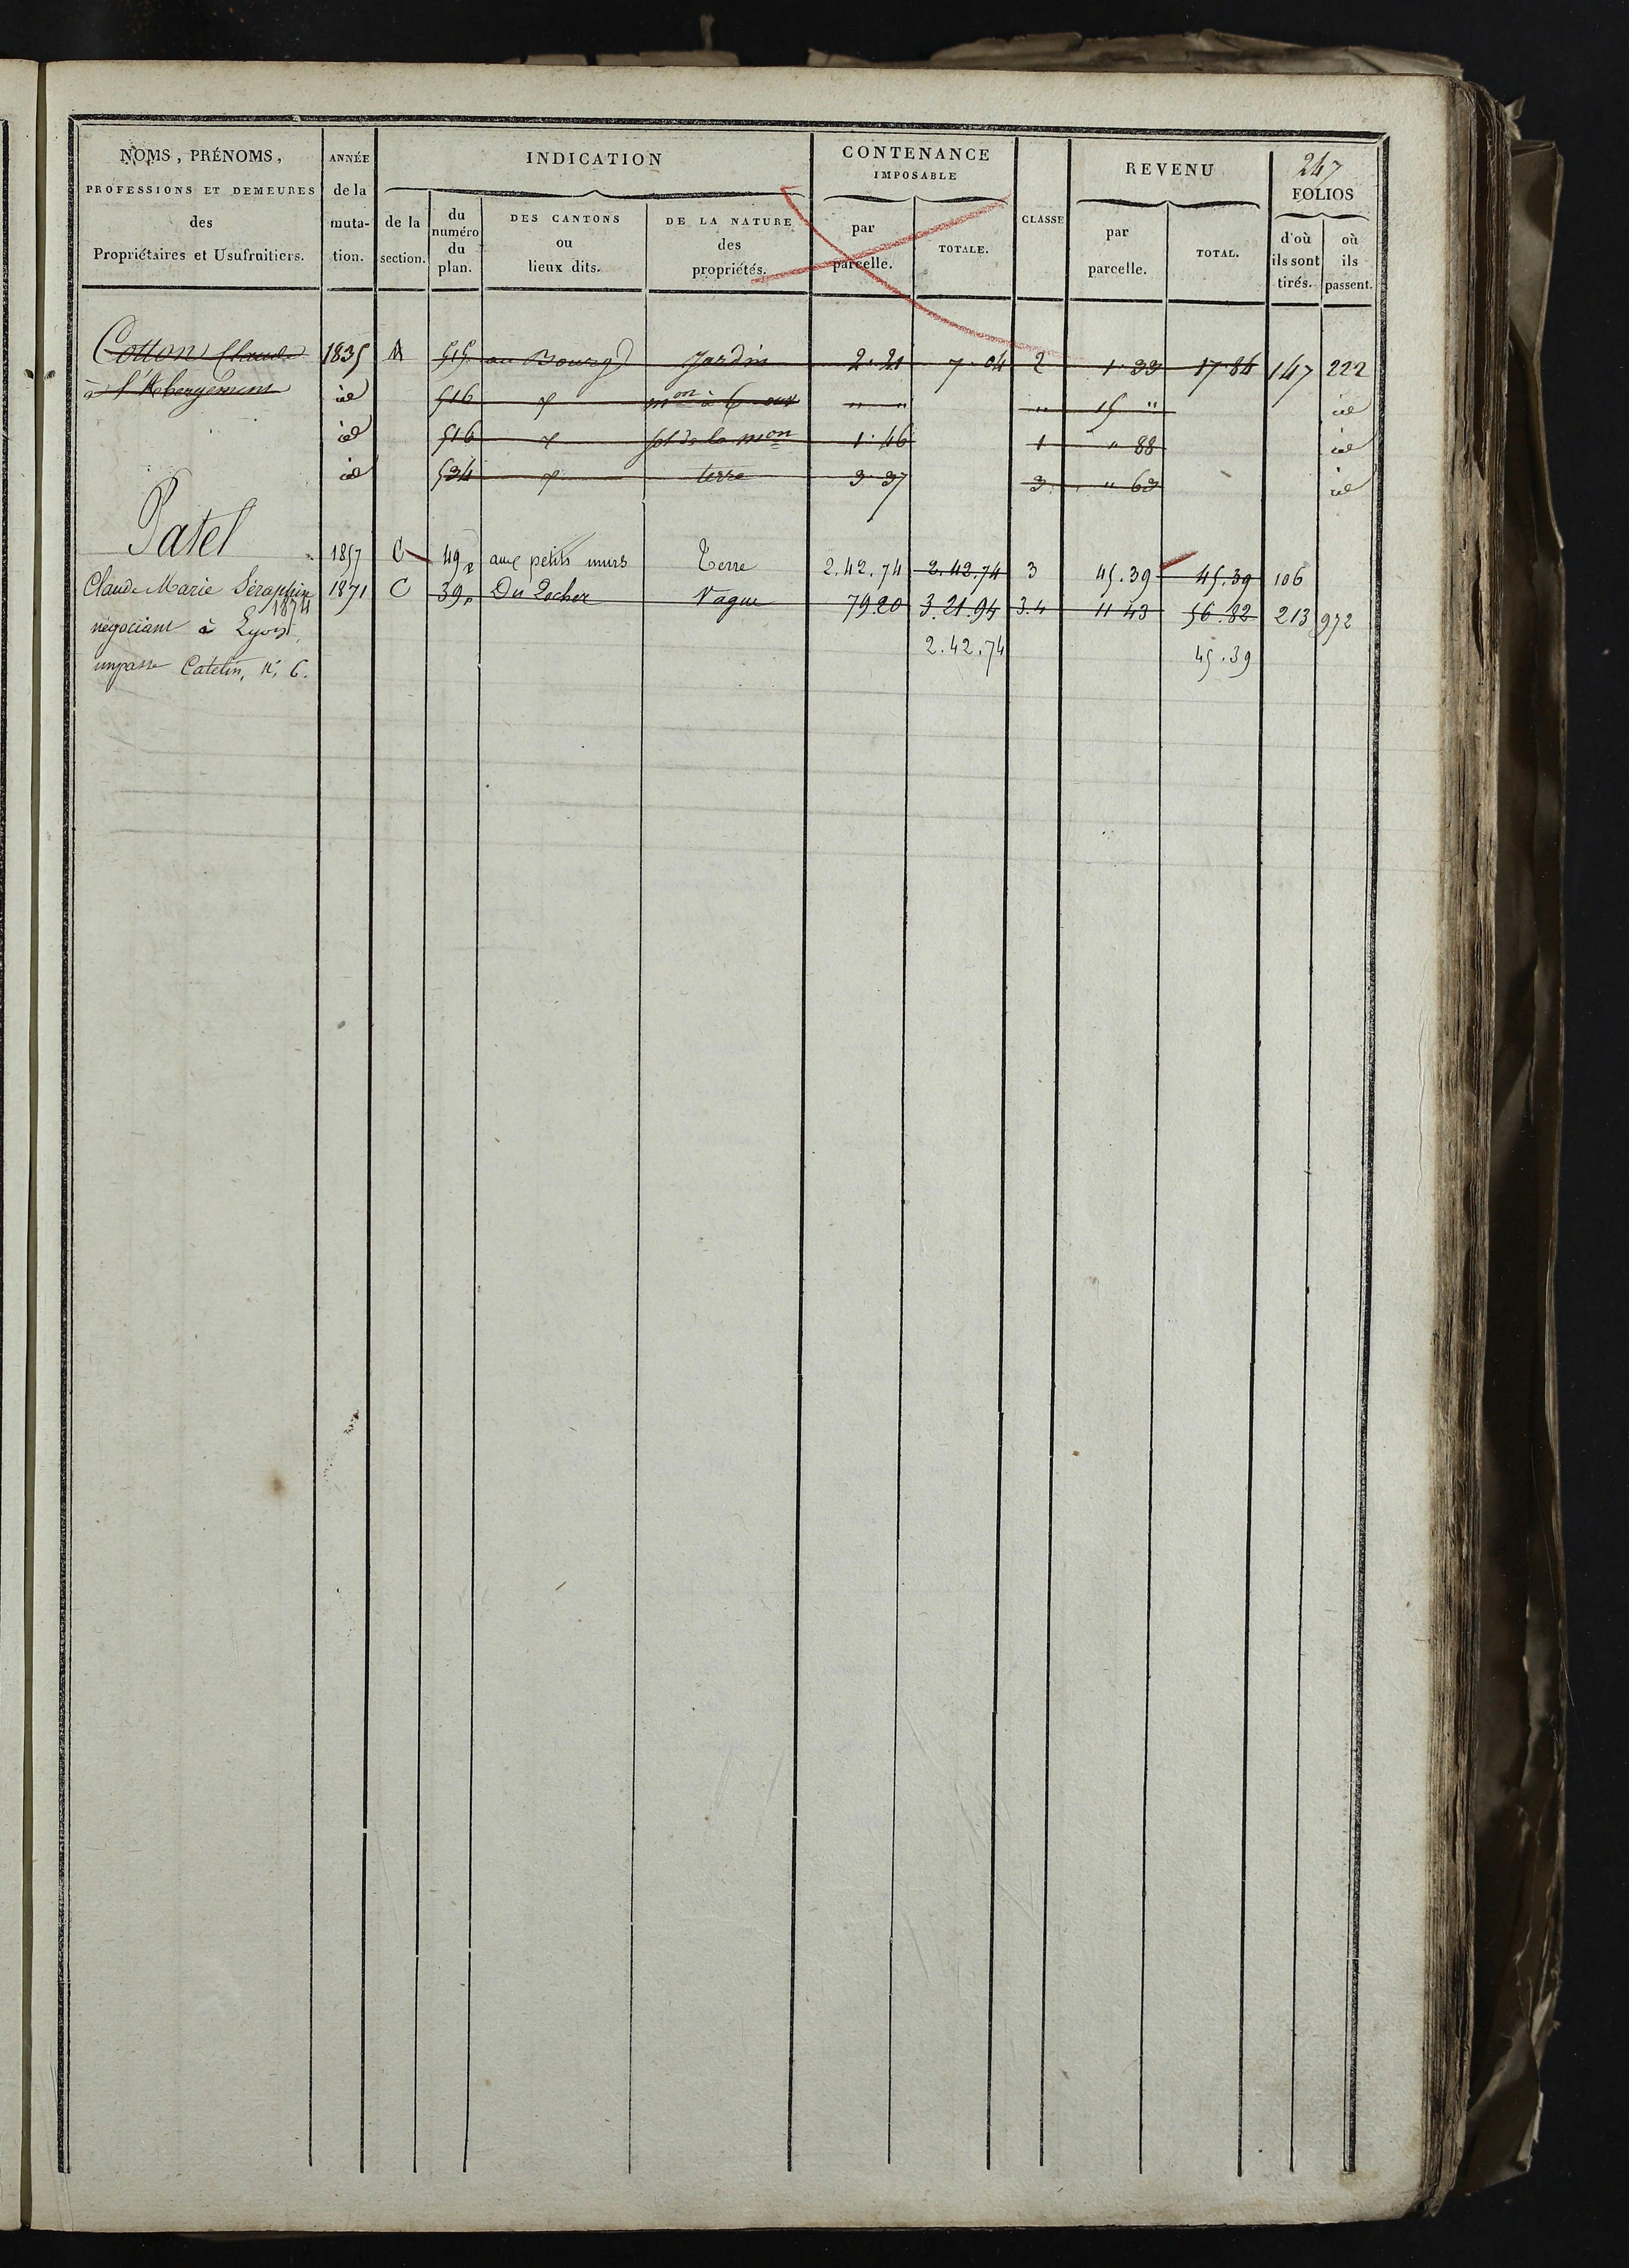 247
NOMS, PRÉNOMS, PROFESSIONS ET DEMEURES des Propriétaires et Usufruitiers.
ANNÉE de la muta- tion.
INDICATION
de la section.
du numéro du plan.
DES CANTONS ou lieux dits.
DE LA NATURE des propriétés.
CONTENANCE IMPOSABLE
par parcelle.
TOTALE.
CLASSE
REVENU
par parcelle.
TOTAL.
FOLIOS
d'où ils sont tirés.
où ils passent.
Cotton Claude 1835 A 515 au Bourg Jardin 2.21 7.04 2 1.33 17.84 147 222
à l'Abergement id 516 mon à 6 our " " " 15 " id
id 516 sol de la mon 1.46 1 " 88 id
id 534 terre 3 37 3 " 63 id
Patel
1857 C 49p aux petits murs Terre 2.42.74 2.42.74 3 45.39 45.39 106
Claude Marie Séraphin 1871 C 39p Du Rocher Vague 79.20 3.21.94 3.4 11 43 56.82 213 972
1874
négociant à Lyon, 2.42.74 45.39
impasse Catelin, N° 6.